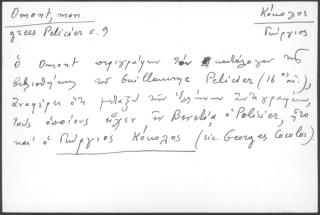 Omont, man. Κόκολος
grecs Pelicier σ. 9 Γεώργιος
Ὁ Omont περιγράφων τὸν κατάλογον τῆς
βιβλιοθήκης τοῦ Guillaume Pelicier (16 αἰ.),
ἀναφέρει ὅτι μεταξὺ τῶν Ἑλλήνων ἀντιγραφέων,
τοὺς ὁποίους εἶχεν ἐν Βενετίᾳ ὁ Pelicier, ἦτο
καὶ ὁ Γεώργιος Κόκολος (sic. Georges Cocolos).